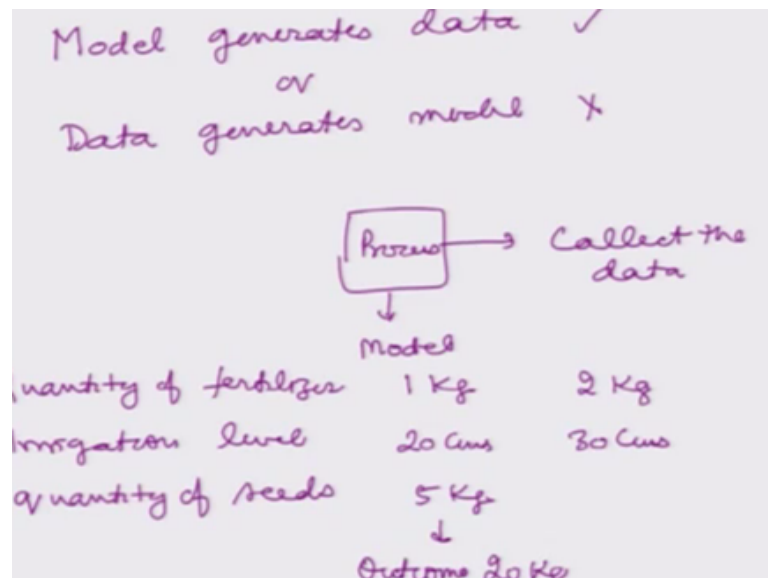 Model generates data ✓
or
Data generates model X
Process → Collect the
data
↓
Model
quantity of fertilizer 1 Kg 2 Kg
Irrigation level 20 Cms 30 Cms
quantity of seeds 5 Kg
↓
Outcome 20 Kg